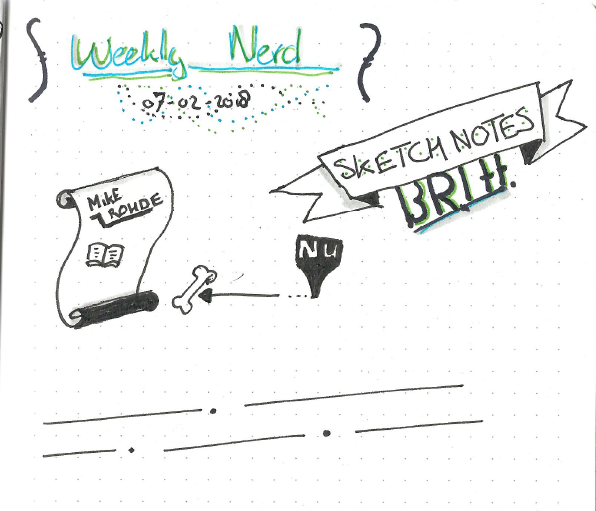 Weekly Nerd
07-02-2018
SKETCH NOTES
BRIH.
MIKE
ROHDE
NU